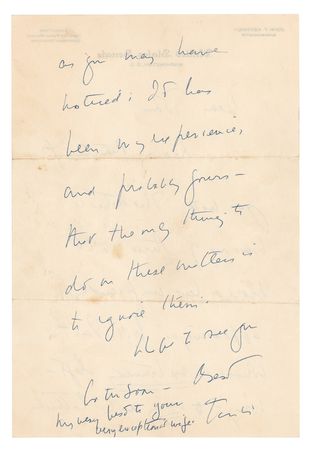 as you may have
noticed; It has
been my experience,
and probably yours —
that the only thing to
do on these matters is
to ignore them.
to see you
soon — Best
my very best to your
very exceptional wife.